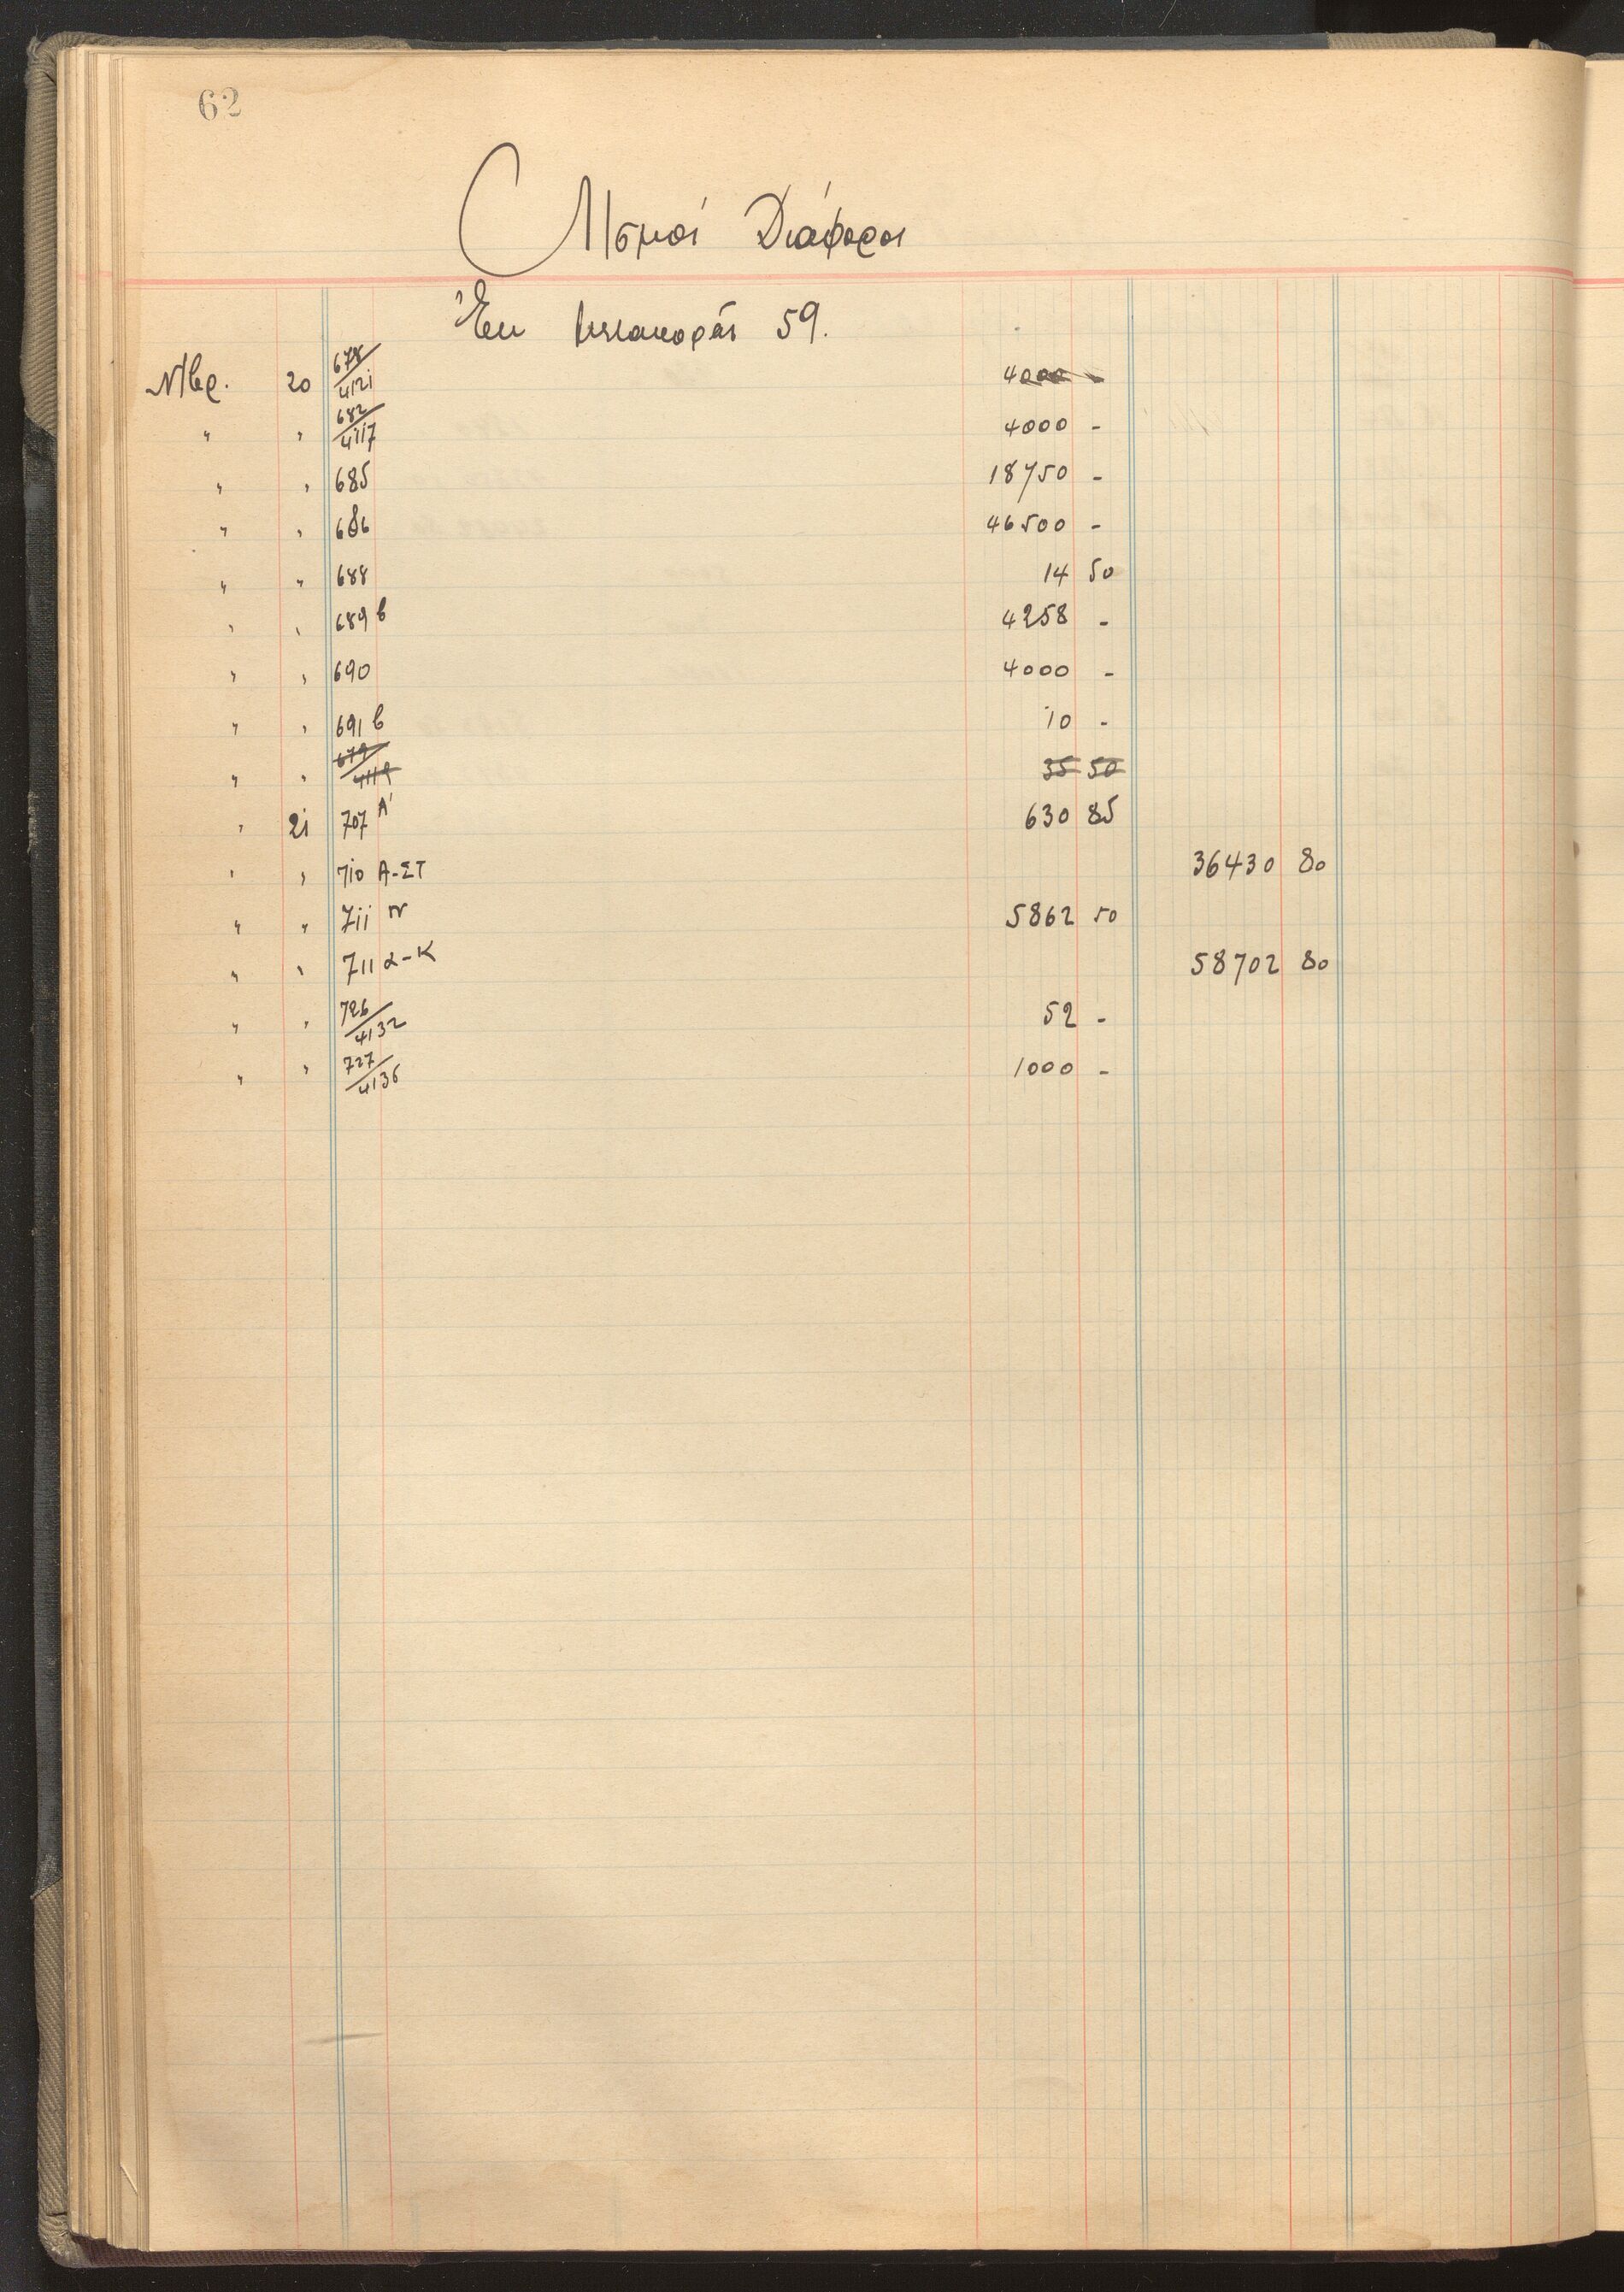 62
Λ/σμοί Διάφοροι
Ἐκ μεταφορᾶς 59.
Ν/βρ. 20 678/4121 4000 -
" " 682/4117 4000 -
" " 685 18750 -
" " 686 46500 -
" " 688 14 50
" " 689 β 4258 -
" " 690 4000 -
" " 691 β 10 -
" " 679/4119 35 50
" 21 707 Α' 630 85
" " 710 Α-ΣΤ 36430 80
" " 711 5862 50
" " 711 α-κ 58702 80
" " 726/4132 52 -
" " 727/4136 1000 -